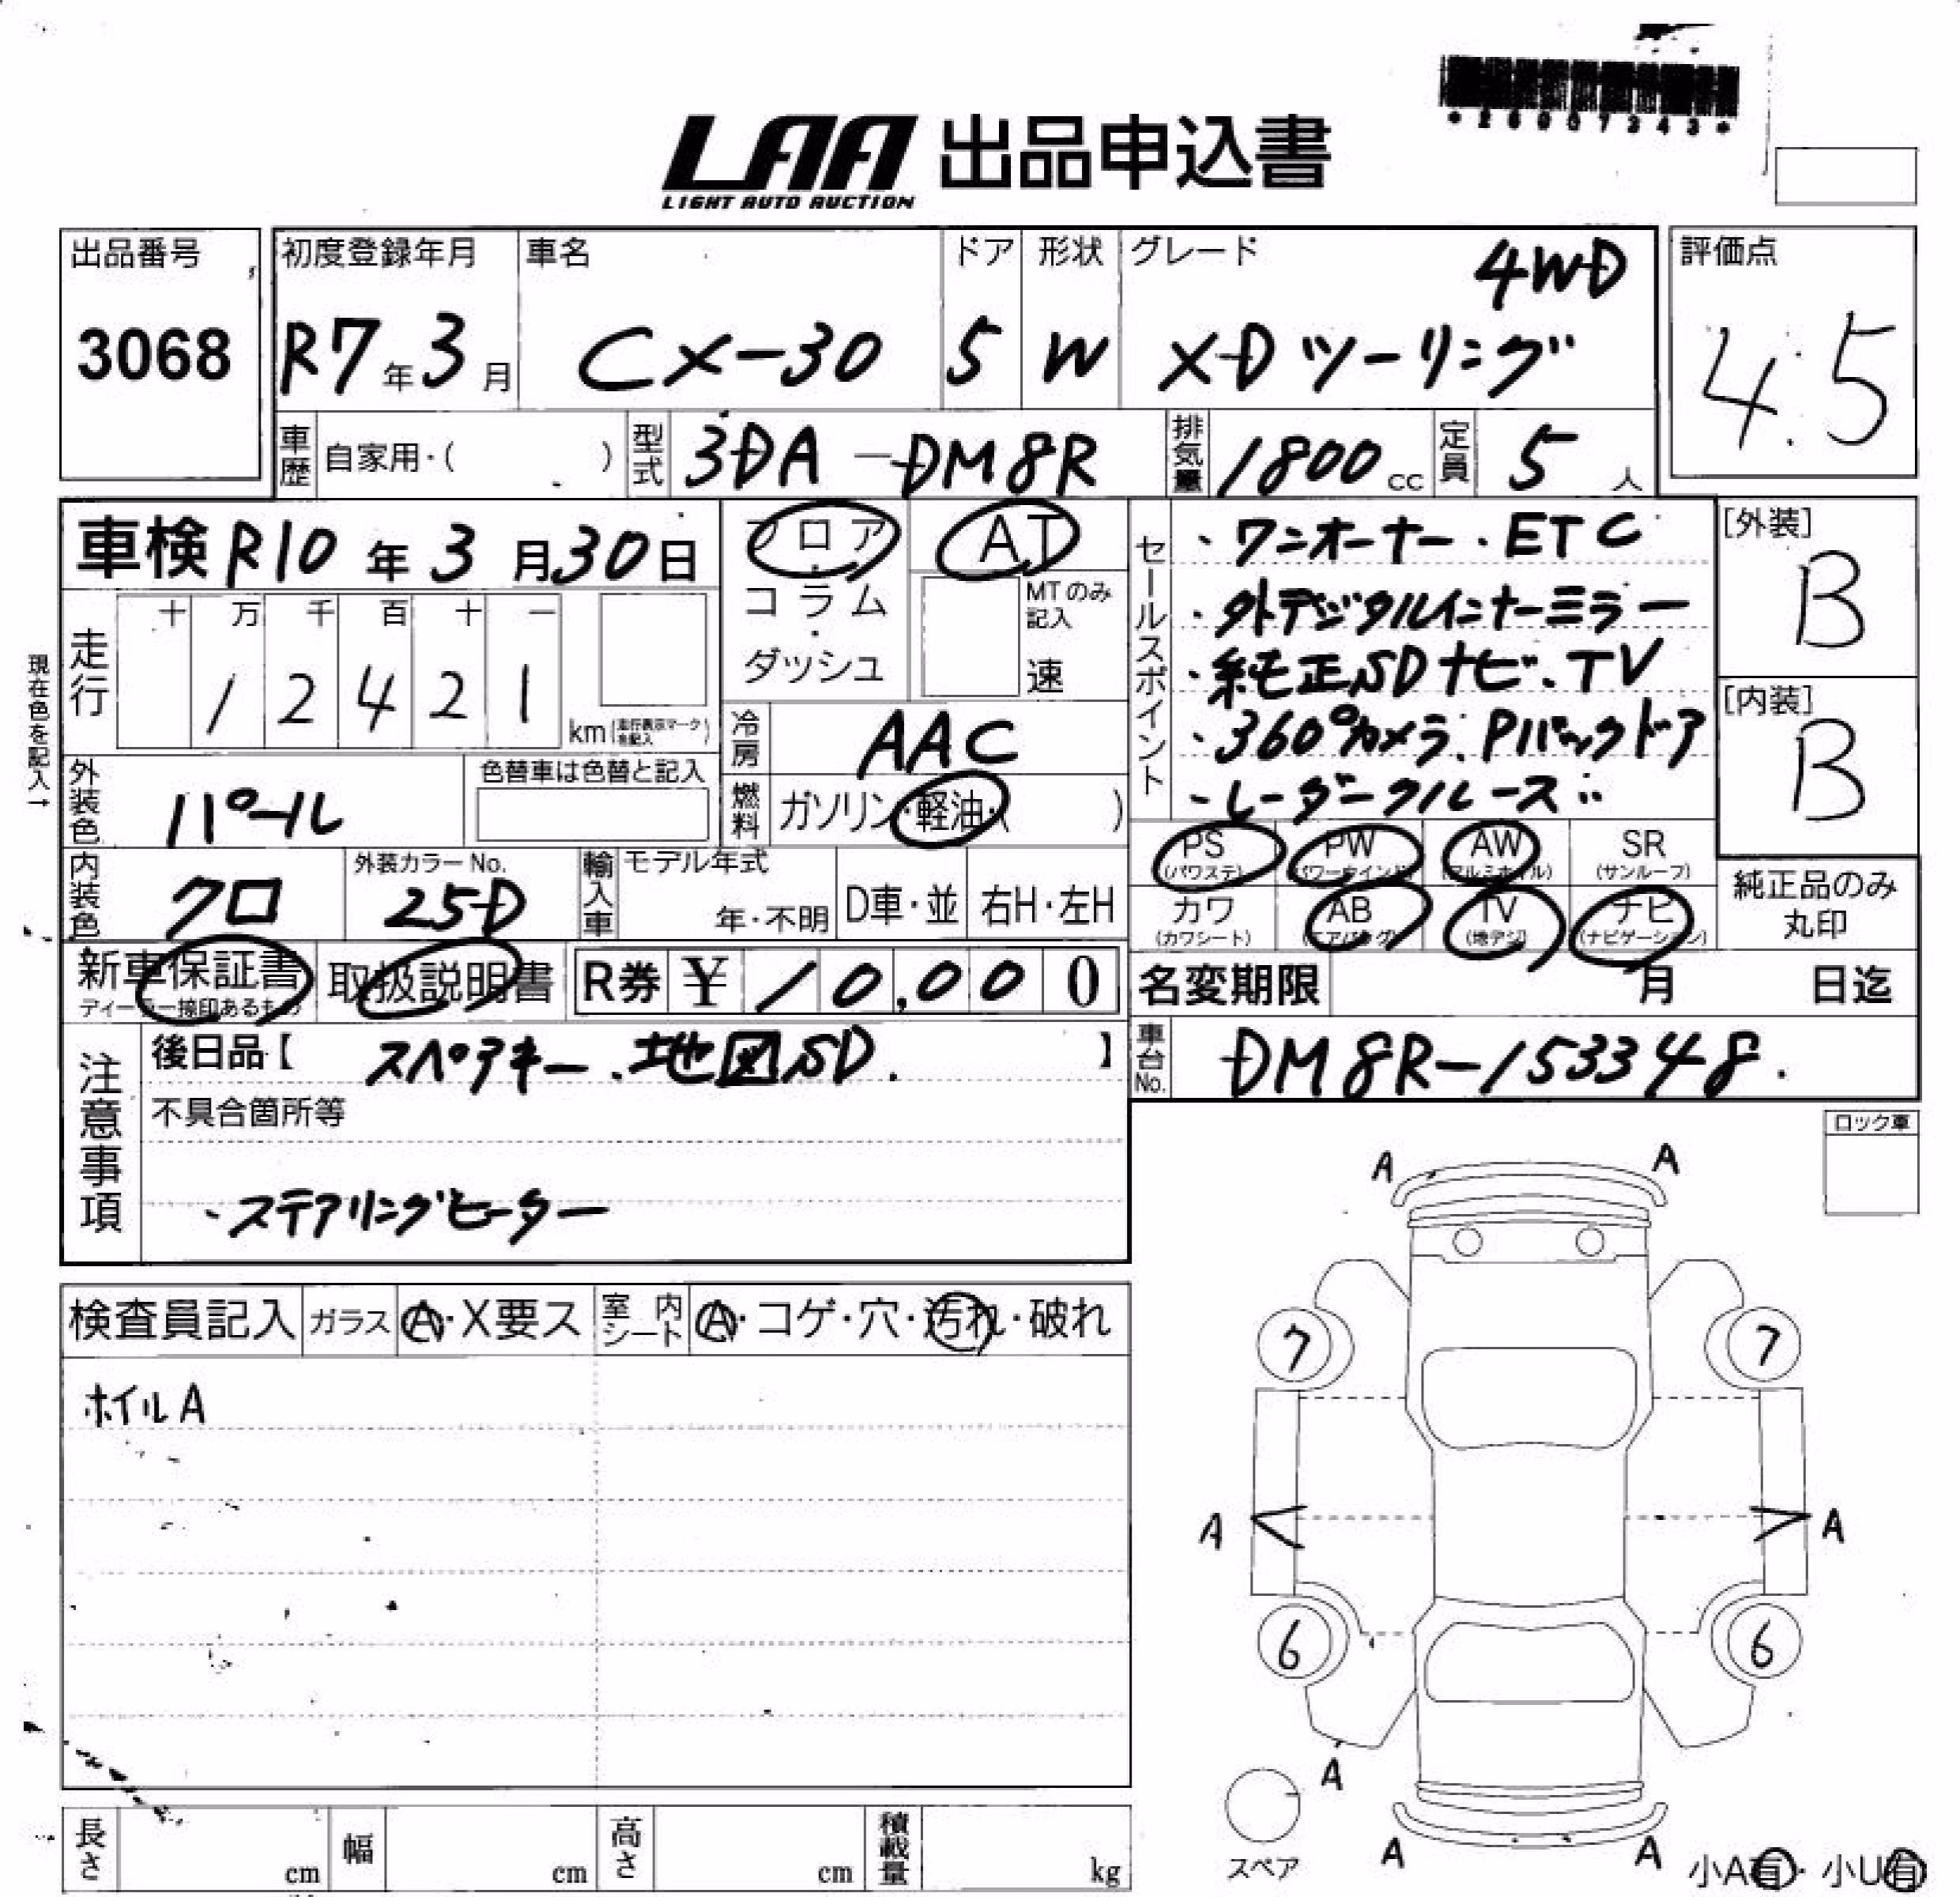 *26007343*
LAA 出品申込書
LIGHT AUTO AUCTION
出品番号 3068
初度登録年月 R7年3月
車名 CX-30
ドア 5
形状 W
グレード 4WD
XDツーリング
評価点 4.5
車歴 自家用・( )
型式 3DA-DM8R
排気量 1800cc
定員 5人
車検 R10年3月30日
フロア・コラム・ダッシュ
AT
MTのみ記入 速
現在色を記入→
走行 十万千百十一
12421 km(走行表示マークを記入)
冷房 AAC
外装色 パール
色替車は色替と記入
燃料 ガソリン・軽油・( )
内装色 クロ
外装カラーNo. 25D
輸入車 モデル年式 年・不明
D車・並
右H・左H
セールスポイント
・ワンオーナー・ETC
・外デジタルインナーミラー
・純正SDナビ、TV
・360°カメラ、Pバックドア
・レーダークルーズ
[外装] B
[内装] B
PS (パワステ)
PW (パワーウインド)
AW (アルミホイル)
SR (サンルーフ)
カワ (カワシート)
AB (エアバッグ)
TV (地デジ)
ナビ (ナビゲーション)
純正品のみ丸印
新車保証書
ディーラー捺印あるもの
取扱説明書
R券 ¥10,000
名変期限 月 日迄
車台No. DM8R-153348.
注意事項
後日品【 スペアキー、地図SD. 】
不具合箇所等
・ステアリングヒーター
ロック車
検査員記入
ガラス A・X要ス
室内シート A・コゲ・穴・汚れ・破れ
ホイルA
A A
7 7
A A
6 6
A
A A
スペア
小A有・小U有
長さ cm
幅 cm
高さ cm
積載量 kg